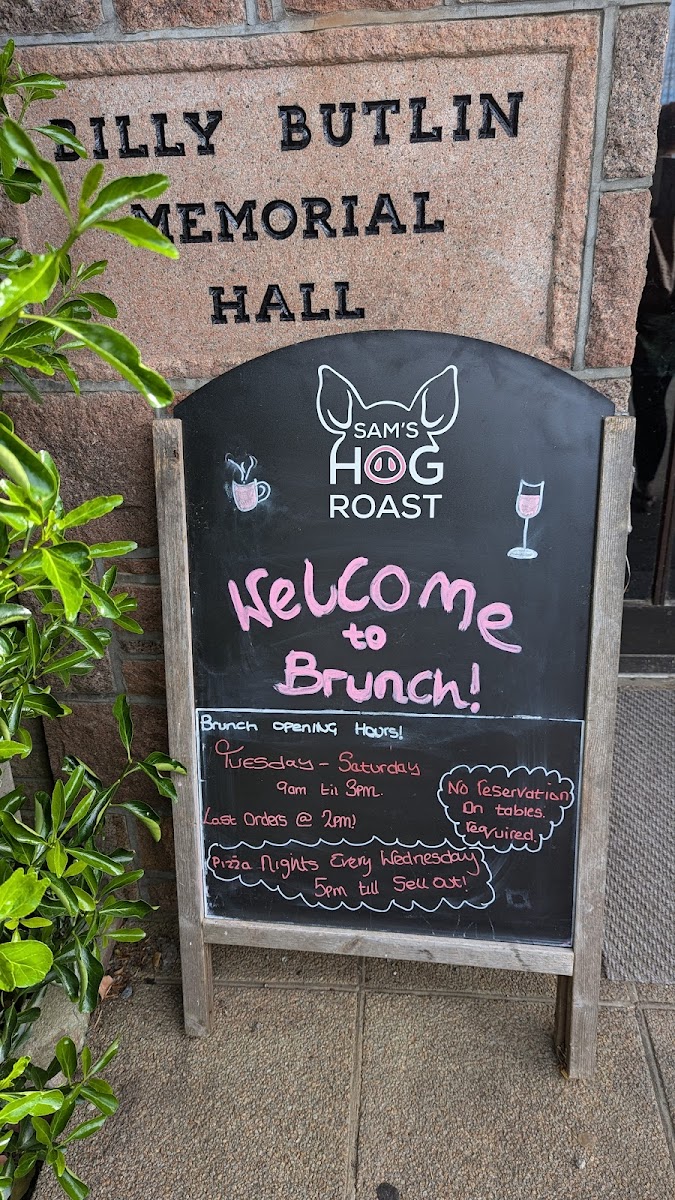 BILLY BUTLIN
MEMORIAL
HALL
SAM'S
HOG
ROAST
Welcome
to
Brunch!
Brunch opening Hours!
Tuesday - Saturday
9am til 3pm.
Last Orders @ 2pm!
No reservation
On tables.
required.
Pizza Nights Every Wednesday
5pm till Sell Out!